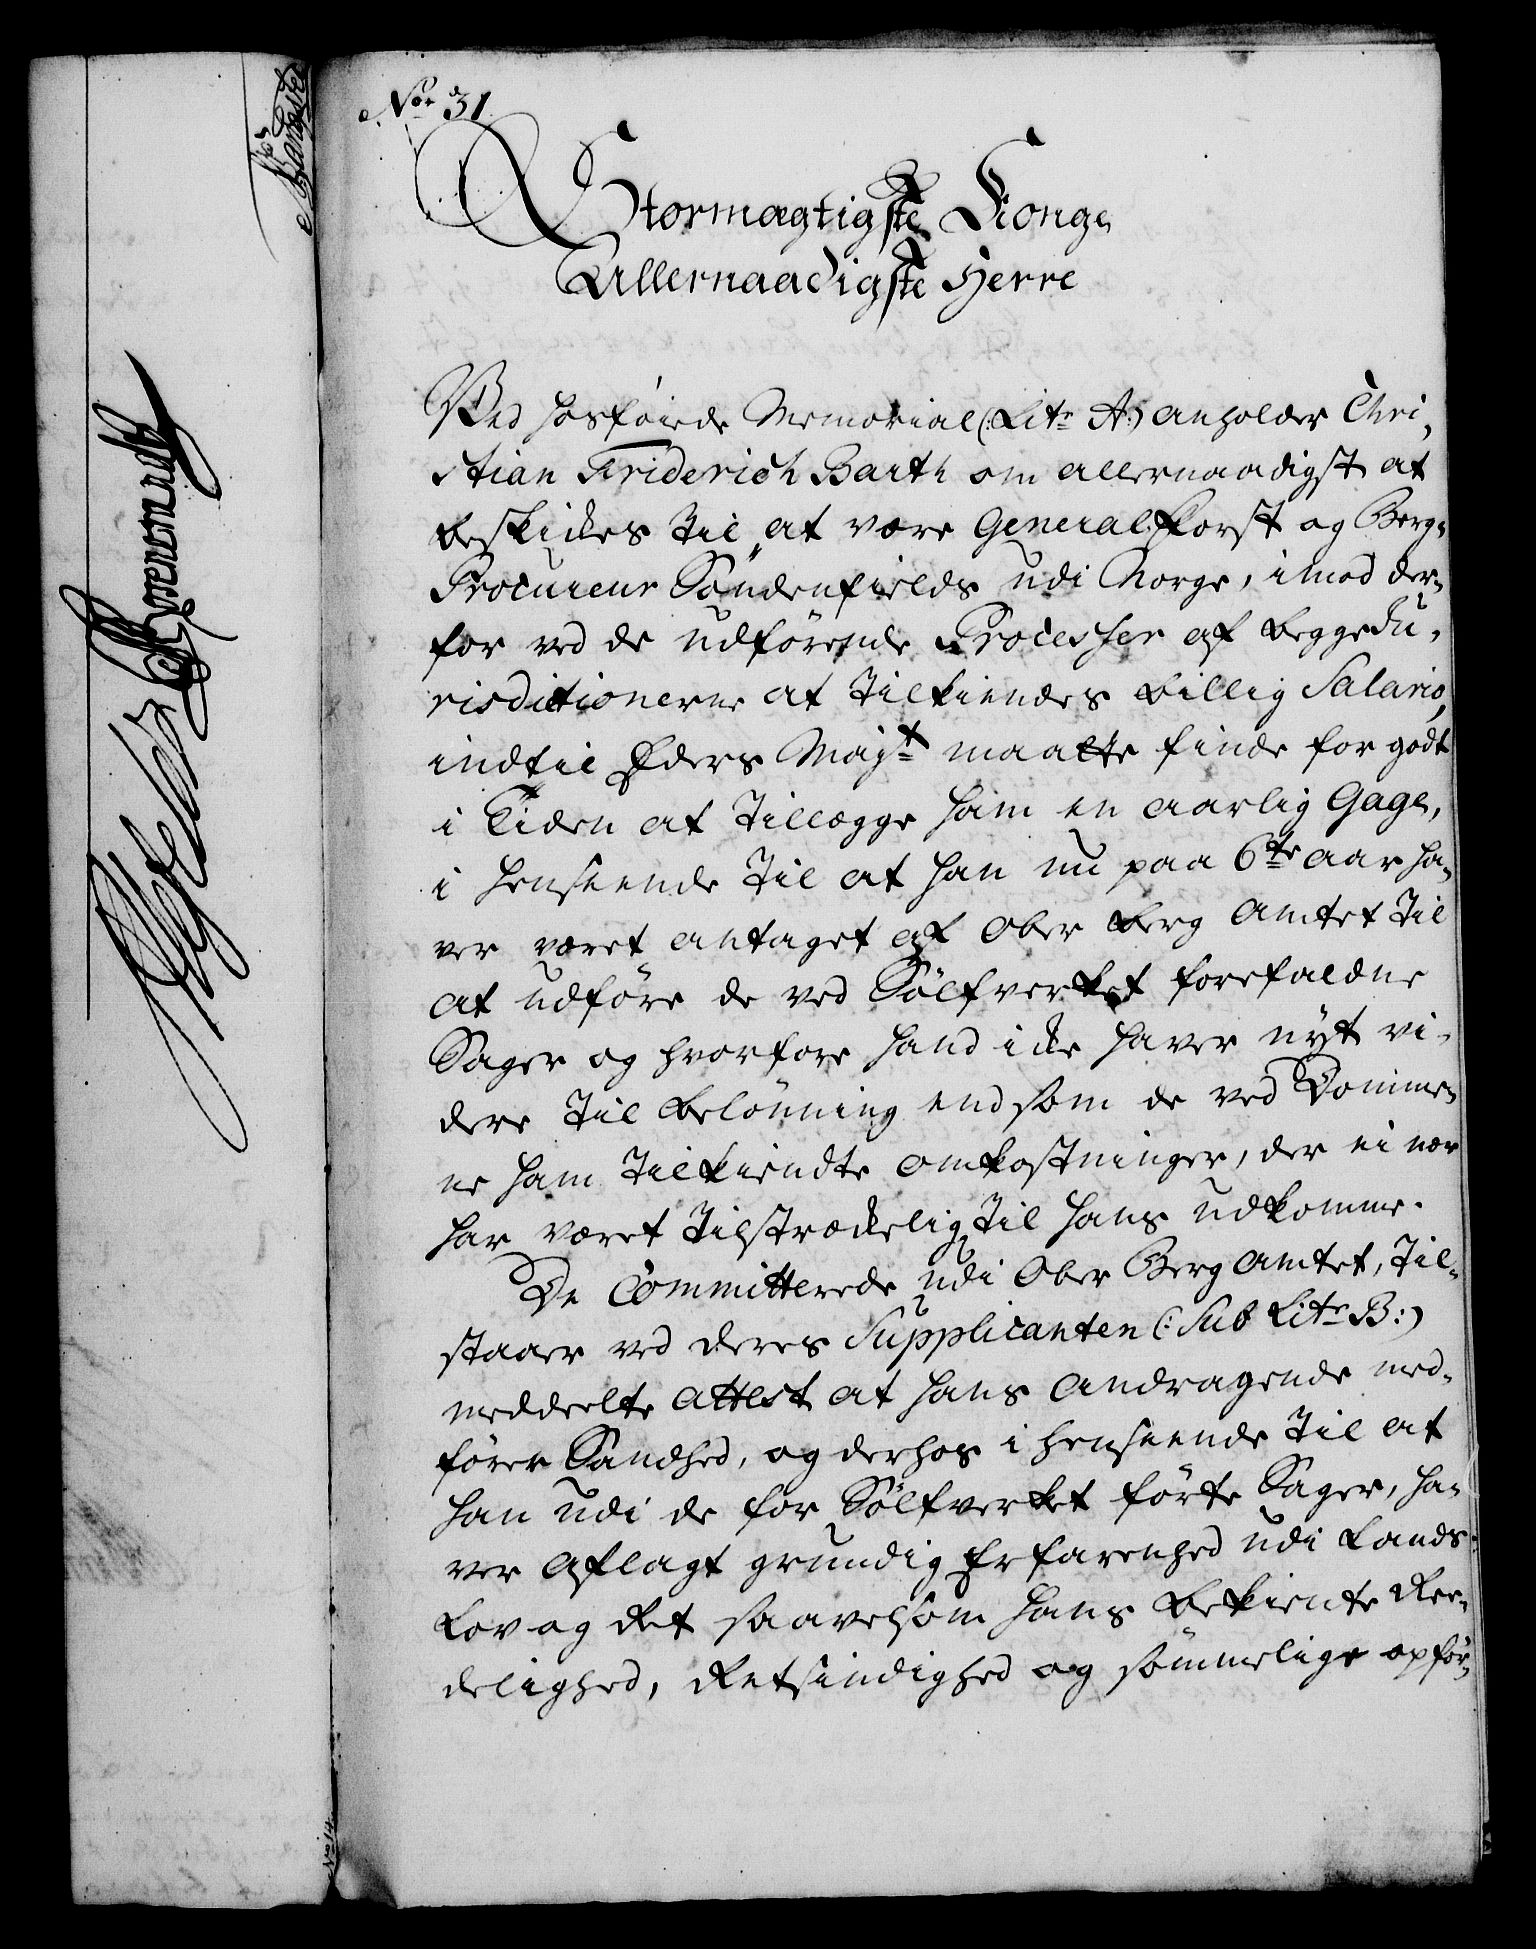 Nor 31.
Stormægtigste Konge
Allernaadigste Herre
Ved hosføiede Memorial (: Litr A:) anholder Chri-
stian Friderich Barth om allernaadigst at
beskikkes til at være General Forst og Berg-
Procureur Søndenfields udi Norge, imod der-
for ved de udførende Processer af begge Ju-
risdictionerne at tilkiendes billig Salario,
indtil Eders Mayt maatte finde for godt
i Tiden at tillægge ham en aarlig Gage,
i henseende til at han nu paa 6te aar ha-
ver været antaget af Ober Berg Amtet til
at udføre de ved Sølfverket forefaldne
Sager og hvorfore hand ikke haver nyt vi-
dere til belønning end som de ved Domme-
ne ham tilkiendte omkostninger, der ei nær
har været tilstrækkelig til hans udkomme.
De Committerede udi Ober Berg Amtet, til-
staaer ved deres Supplicanten (: Sub Litr B:)
meddeelte Attest at hans andragende med-
fører Sandhed, og derhos i henseende til at
han udi de for Sølfverket førte Sager, ha-
ver aflagt grundig Erfarenhed udi Lands
Lov og Ret saavelsom hans bekiente Ree-
delighed, Retsindighed og sømmelige opfør-
No 14.